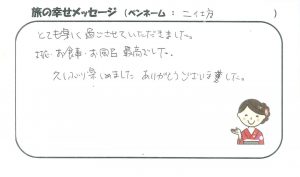 旅の幸せメッセージ (ペンネーム: 二代坊 )
とても楽しく過ごさせていただきました。
お食事・お風呂 最高でした。
久しぶり楽しめました ありがとうございました。